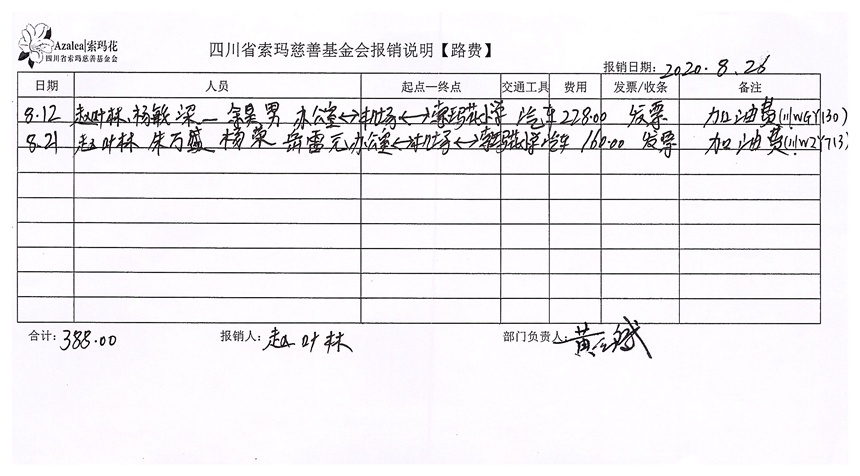 Azalea|索玛花
四川省索玛慈善基金会
四川省索玛慈善基金会报销说明【路费】
报销日期：2020.8.26
日期 人员 起点—终点 交通工具 费用 发票/收条 备注
8.12 赵叶林、杨敏 办公室↔机场↔索玛花小学 汽车 228.00 发票 加油费(川WGY130)
8.21 赵叶林 朱万盛 杨 岳雷元 办公室↔机场↔索玛花小学 汽车 160.00 发票 加油费(川WZY713)
合计：388.00 报销人：赵叶林 部门负责人：黄